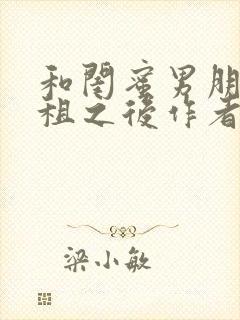 和閨蜜男朋
租之後作者
梁小敏